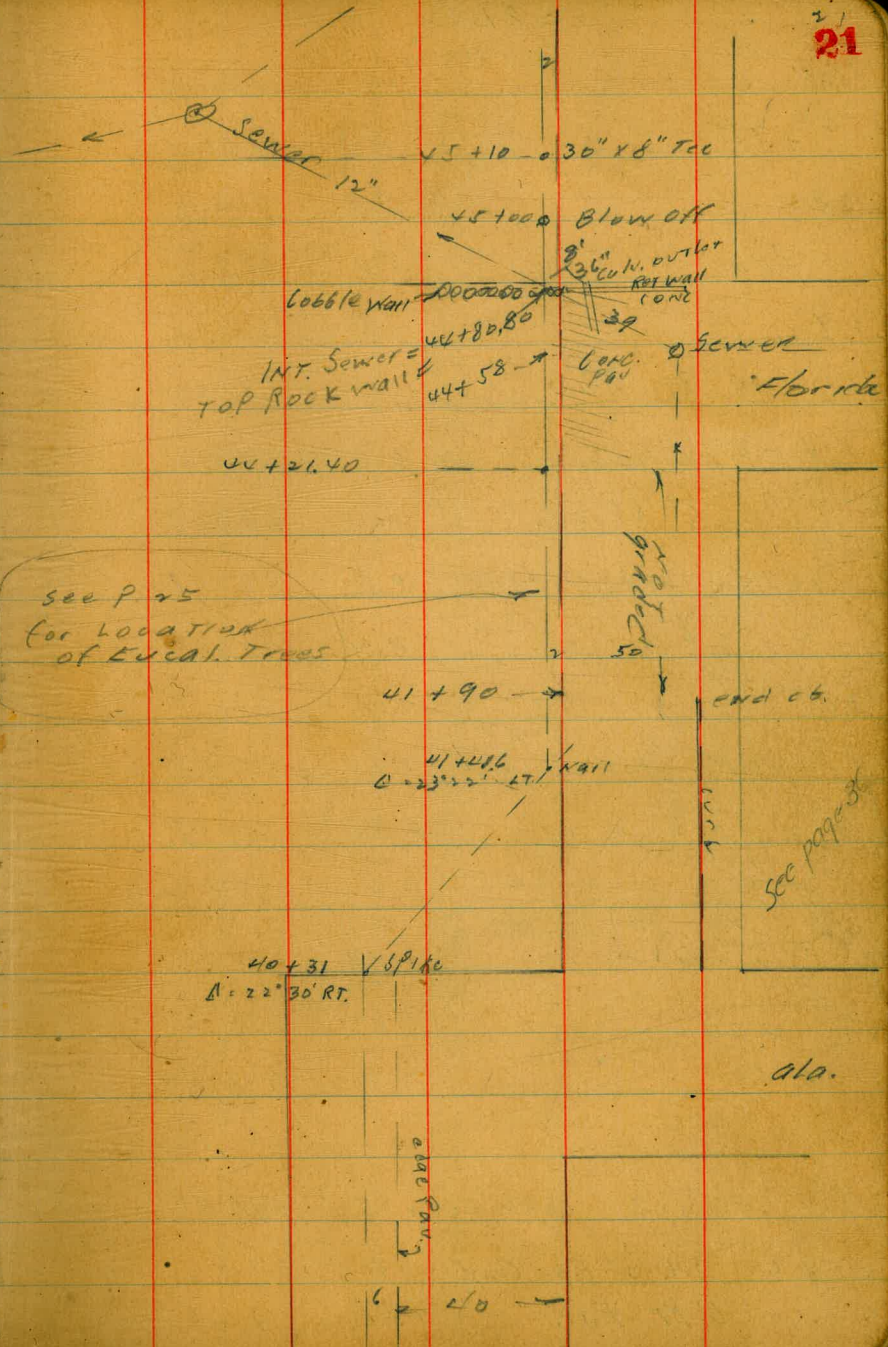 21
2
Sewer
12"
45+10
30" x 8" Tee
45+00
Blow off
8'
36" Culv. outlet
Ret wall
conc
Cobble wall
39
INT. Sewer = 44+80.80
TOP ROCK wall
44+58
Conc.
Pav
Sewer
Florida
44+21.40
Not
graded
see P. 25
for Location
of Eucal. Trees
2
50
41+90
end cb.
Nail
Δ = 23°22' LT
curb
See page
40+31
Spike
Δ = 22°30' RT.
ala.
edge Pav.
6